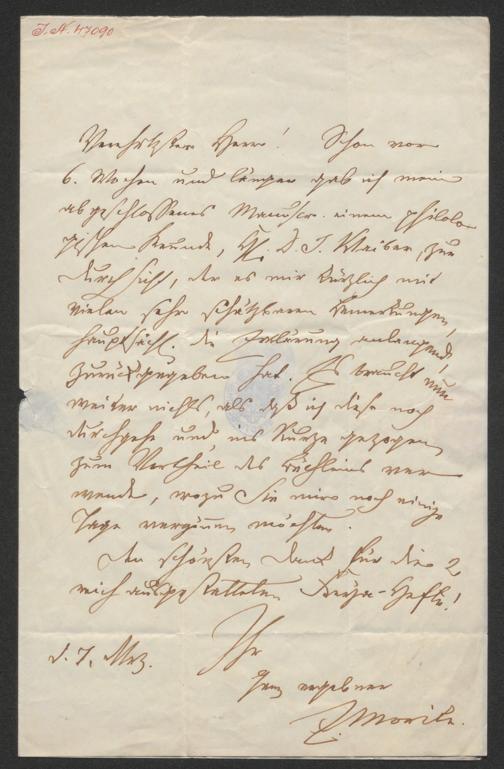 I. N. 47090
Verehrtester Herr! Schon vor
6. Wochen und länger gab ich mein
abgeschlossenes Manuscr. einem philolo-
gischen Freunde, H. D. J. Klaiber, zur
Durchsicht, der es mir kürzlich mit
vielen sehr schätzbaren Bemerkungen,
hauptsächl. die Erklärung anlangend,
zurückgegeben hat. Es braucht nun
weiter nichts, als daß ich diese noch
durchgehe und ins Kurze gezogen
zum Vortheil des Büchleins ver-
wende, wozu Sie mir noch einige
Tage vergönnen möchten.
Den schönsten Dank für die 2
reich ausgestatteten Freya-Hefte!
Ihr
ganz ergebner
E. Mörike.
d. 7. Mrz.